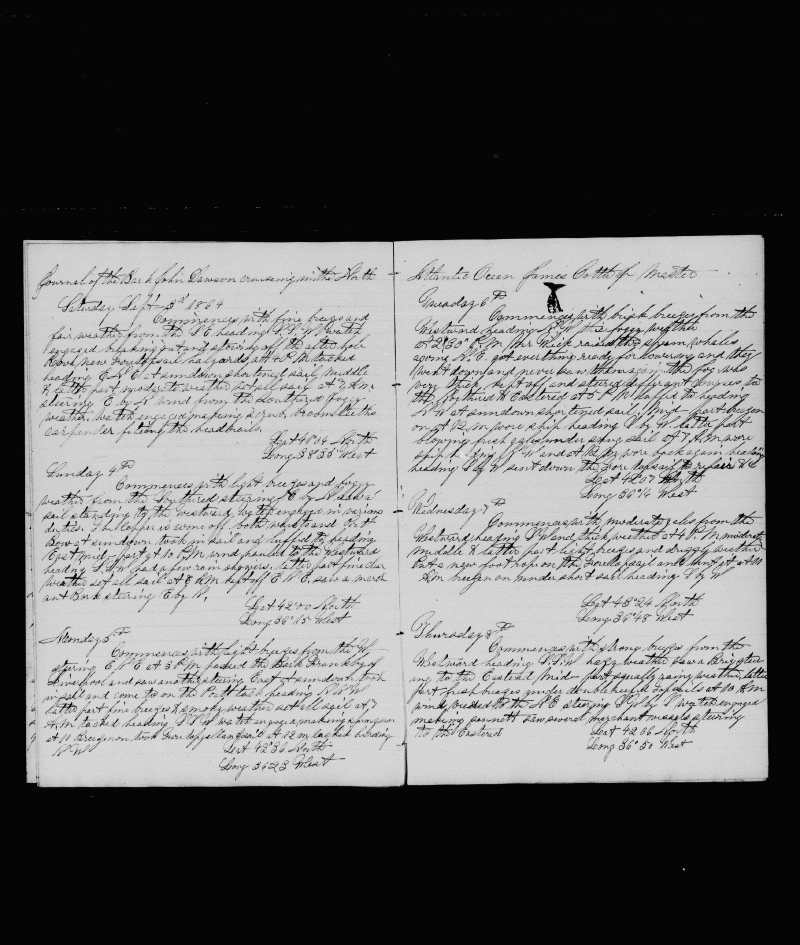 Journal of the Bark John Dawson cruising in the North
Saturday Sept 3d 1864
Commences with fine breezes and
fair weather from the S E heading S S W watch
engaged breaking out and stowing off the after hole
Rove new Foretopsail halyards, at 4 P M tacked
heading E N E at sundown shortened sail, Middle
& latter part moderate weather set all sail at 7 A.M.
steering E by N wind from the Southard foggy
weather, watch engaged making scrub brooms &c the
carpenter fixing the headrails
Lat 41°04 North
Long 38°35 West
Sunday 4th
Commences with light breezes and foggy
weather from the Southard steering E by N saw a
sail standing to the westward, watch engaged in various
duties. The Copper is come off both waist and
Bow at sundown took in sail and luffed to heading
East mid-part at 10 P.M wind hauled to the westward
heading S.S.W had a few rain showers, latter part fine clear
weather set all sail at 8 A M kept off E N E, saw a merch
ant Bark steering E by N,
Lat 42°00 North
Long 36°05 West
Monday 5th
Commences with light breezes from the W
steering E N E at 3 P M passed the Bark Frankby of
Liverpool and saw another steering East at sundown took
in sail and come to on the Port tack heading N.N.W
latter part fine breezes & smoky weather set all sail at 7
A.M. tacked heading S S W watch engaged making spunyarn
at 11 Breezing on, took Foretopgallantsail at 12 m tacked heading
N.W
Lat 42°36 North
Long 34°23 West
Atlantic Ocean James Cottle Jr Master
Tuesday 6th
Commences with brisk breezes from the
Westward heading N.W fine foggy weather
at 2.30 P.M. Mr raised three sperm whales
going N.E. got everything ready for lowering and they
went down and never saw them again, the fog was
very thick, kept off and steered different courses to
the Northard & Eastered at 5 P.M luffed to heading
N W at sundown shortened sail, Mid part breezen
on at 12 m wore ship heading S by W latter part
blowing fresh gale under snug sail at 7 A.M. wore
ship heading N W and at 10 A.M. wore back again heading
heading S by W sent down the Fore topsail to repair &c
Lat 42°07 North
Long 36°14 West
Wednesday 7th
Commences with moderate gales from the
Westward heading S W and thick weather at 4 P. M. moderate
Middle & latter part light breezes and drizzly weather
Put a new footrope on the Foretopsail and bent it at 10
A.M. breezen on under short sail heading S by W
Lat 43°24 North
Long 36°48 West
Thursday 8th
Commences with strong breezes from the
Westward heading S.S.W hazy weather saw a Brig steer-
ing to the Eastard Mid-part squally rainy weather, latter
part fresh breezes under double reefed Topsails at 10 A.M
wind veered to the N E steering S W by S watch engaged
making sennett saw several merchant vessels steering
to the Eastered
Lat 42°06 North
Long 36°50 West